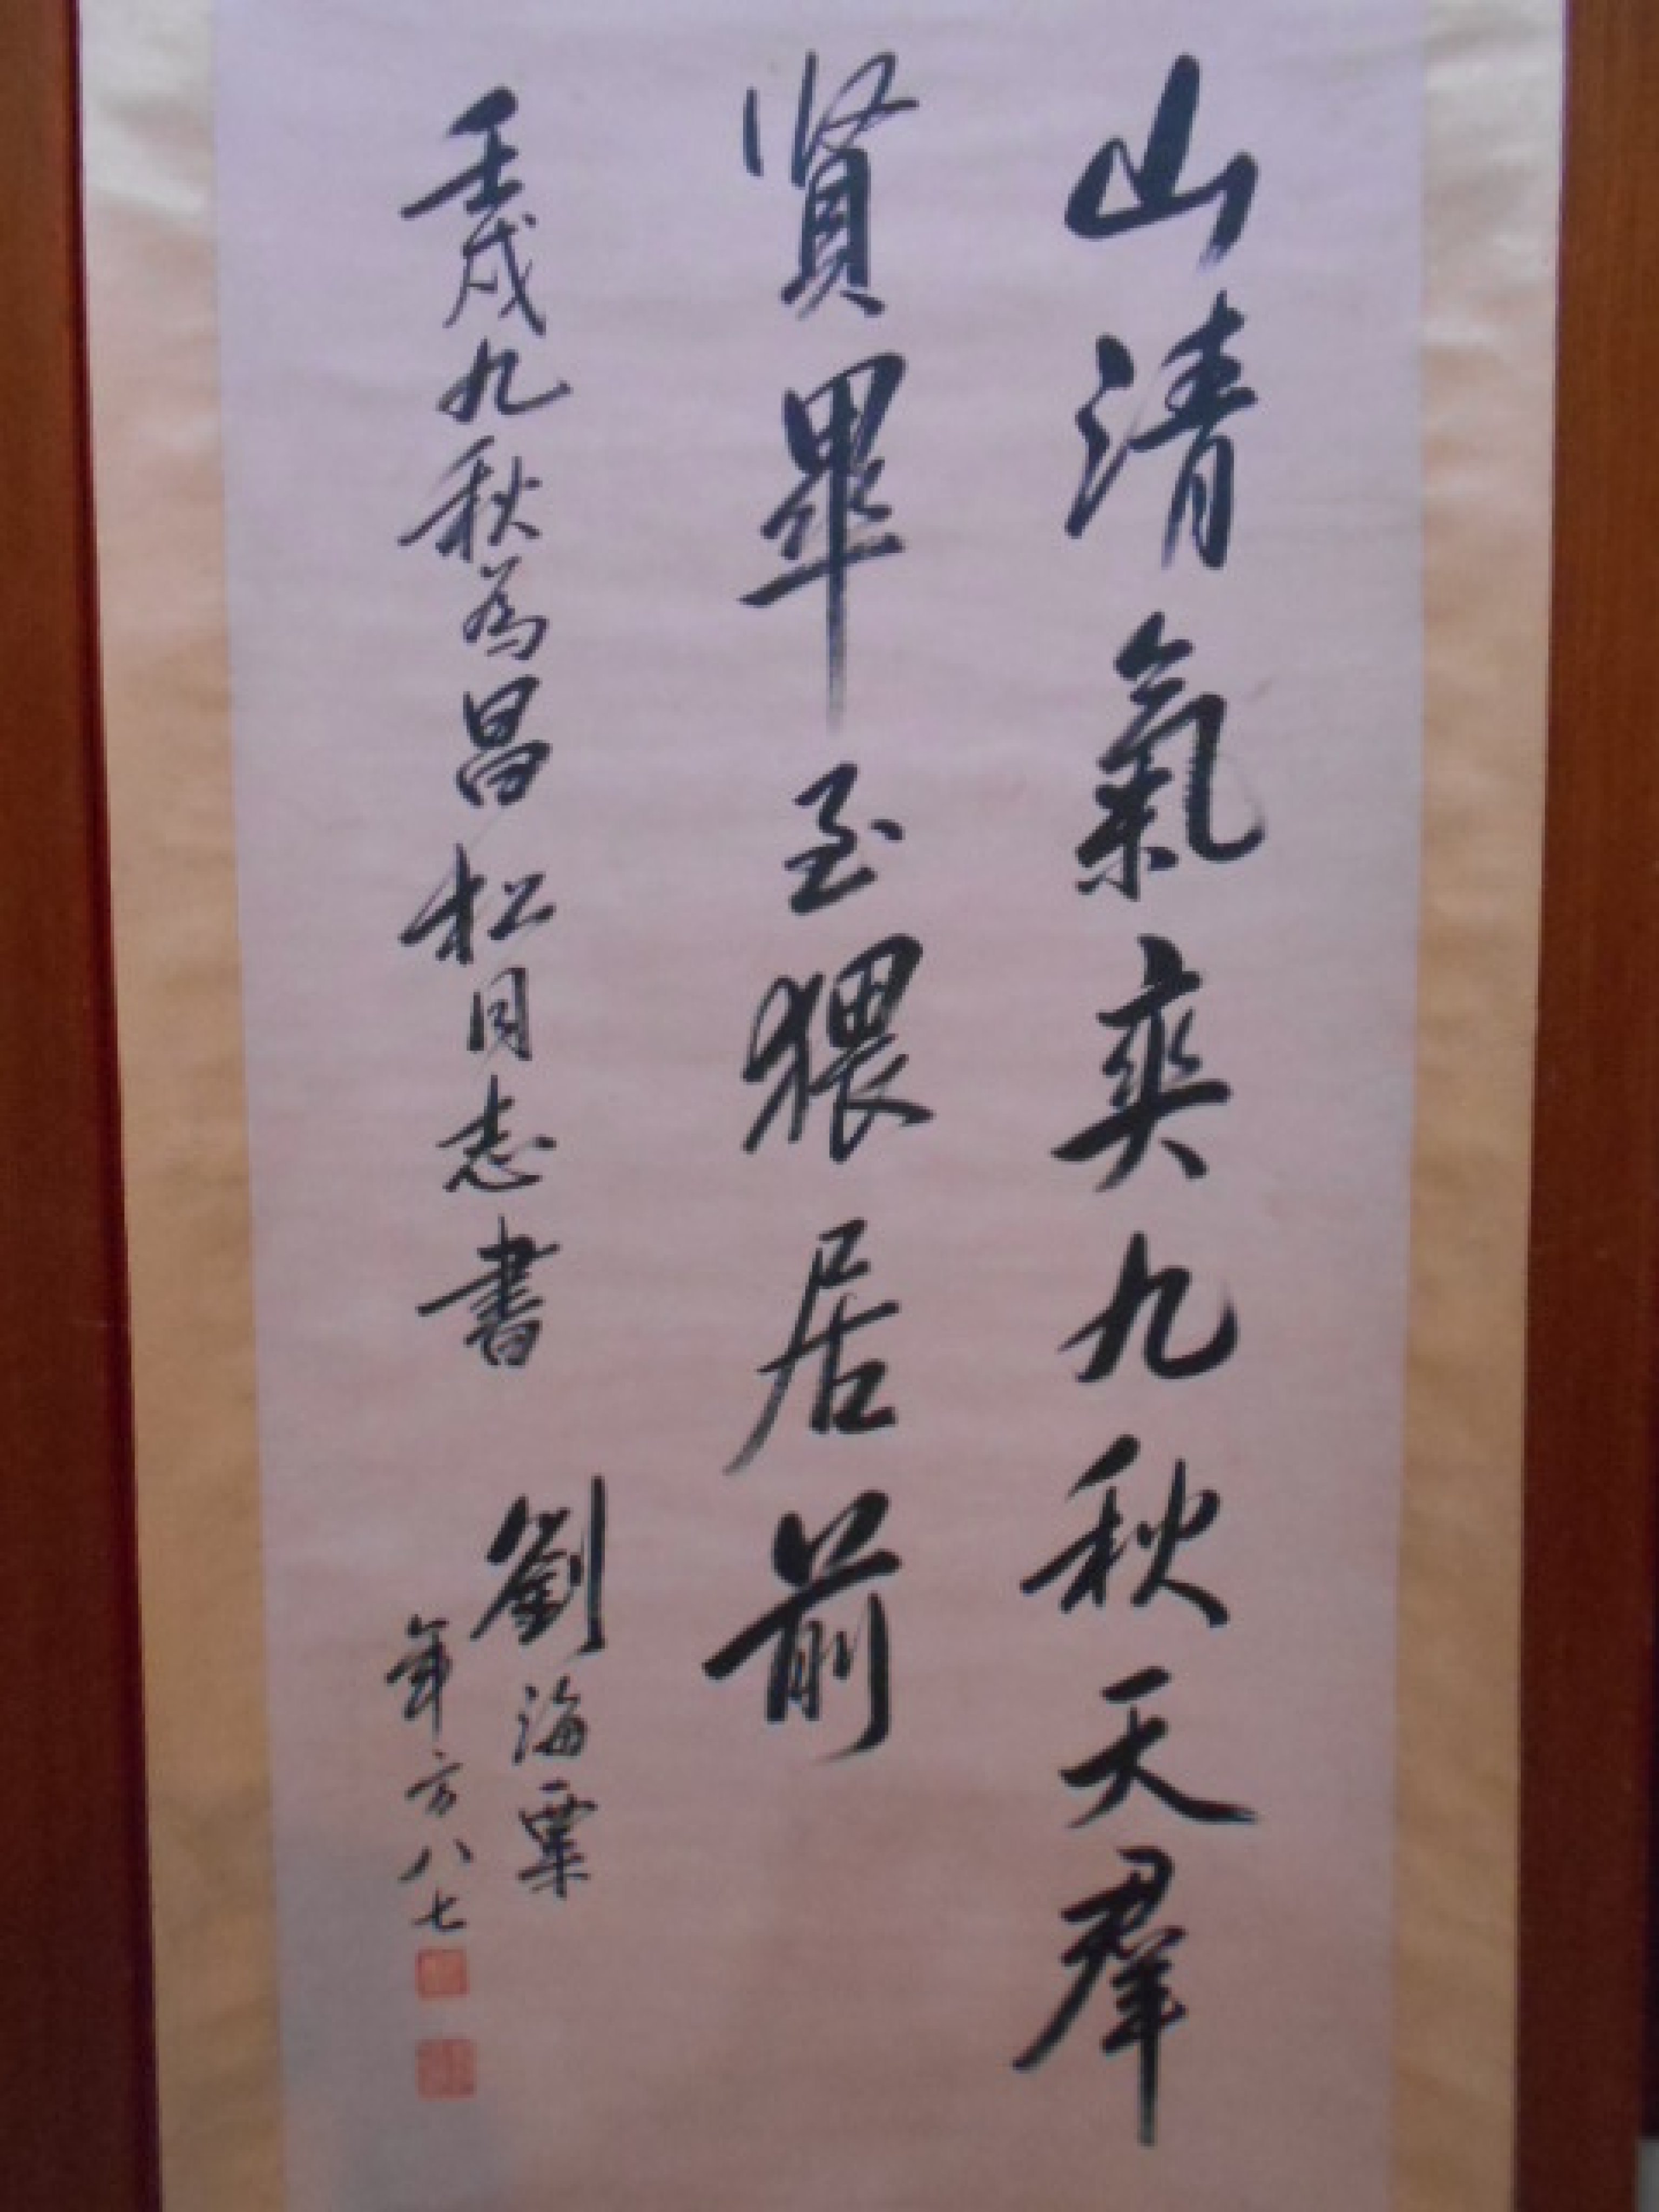 山清氣爽九秋天群
贤畢至猥居前
壬戌九秋為昌松同志書
劉海粟
年方八七